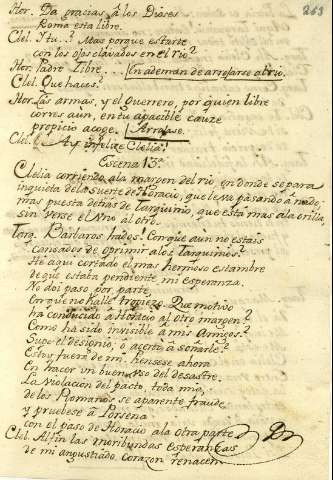 Hor. Da gracias â los Dioses
Roma esta libre.
Clel. Y tu..? Mas porque estarte
con los ojos clavados en el rio?
Hor. Padre Libre... En ademan de arrojarse al rio.
Clel. Que haces?
Hor. Las armas, y el guerrero, por quien libre
corres aun, en tu apacible cauze
propicio acoge. Arrojase.
Clel. Ay infelize Clelia!
Escena 13ª
Clelia corriendo a la margen del rio, en donde se para
inquieta de la suerte de Horacio, que le va pasando â nado,
mas puesta detras de Tarquinio, que esta mas a la orilla
sin verse el uno al otro.
Tarq. Barbaros hados! Conque aun no estais
cansados de oprimir a los Tarquinos?
He aqui cortado el mas hermoso estambre
de que estaba pendiente mi esperanza.
No doi paso por parte,
en que no halle tropiezo. Que motivo
ha conducido â Horacio al otro margen?
Como ha sido invisible â mis Amigos?
Supo el designio, ô acertò a soñarle?
Estoy fuera de mi. Piensese ahora
en hacer un buen uso del desastre.
La violacion del pacto, toda mia,
de los Romanos se aparente fraude
y pruebese â Porsena
con el paso de Horacio a la otra parte
Clel. Al fin las moribundas esperanzas
de mi angustiado corazon renacen
243